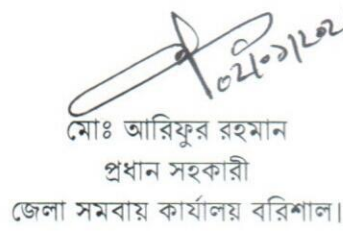 মোঃ আরিফুর রহমান
প্রধান সহকারী
জেলা সমবায় কার্যালয় বরিশাল।